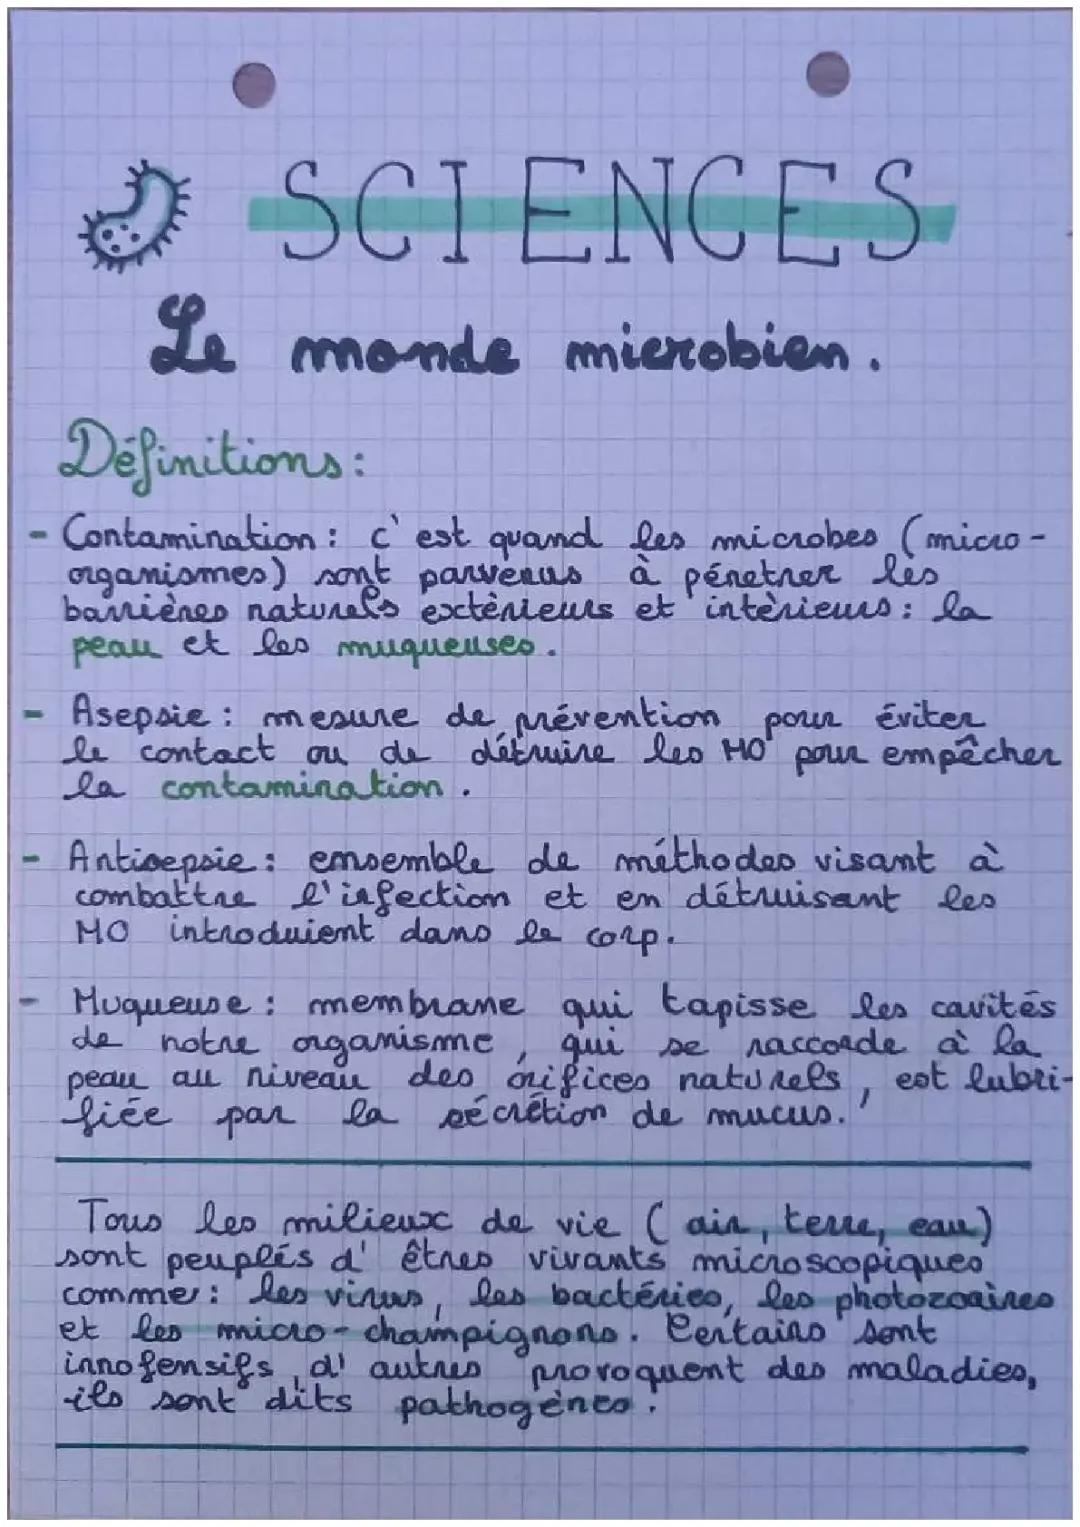 SCIENCES
Le monde microbien.
Définitions:
- Contamination : c'est quand les microbes (micro-
organismes) sont parvenus à pénetrer les
barrières naturels extèrieurs et intèrieurs : la
peau et les muqueuses.
- Asepsie : mesure de prévention pour éviter
le contact ou de détruire les MO pour empêcher
la contamination.
- Antisepsie : ensemble de méthodes visant à
combattre l'infection et en détruisant les
MO introduient dans le corp.
- Muqueuse : membrane qui tapisse les cavités
de notre organisme, qui se raccorde à la
peau au niveau des orifices naturels, est lubri-
fiée par la sécrétion de mucus.
Tous les milieux de vie (air, terre, eau)
sont peuplés d'êtres vivants microscopiques
comme : les virus, les bactéries, les photozoaires
et les micro-champignons. Certains sont
innofensifs, d'autres provoquent des maladies,
ils sont dits pathogènes.